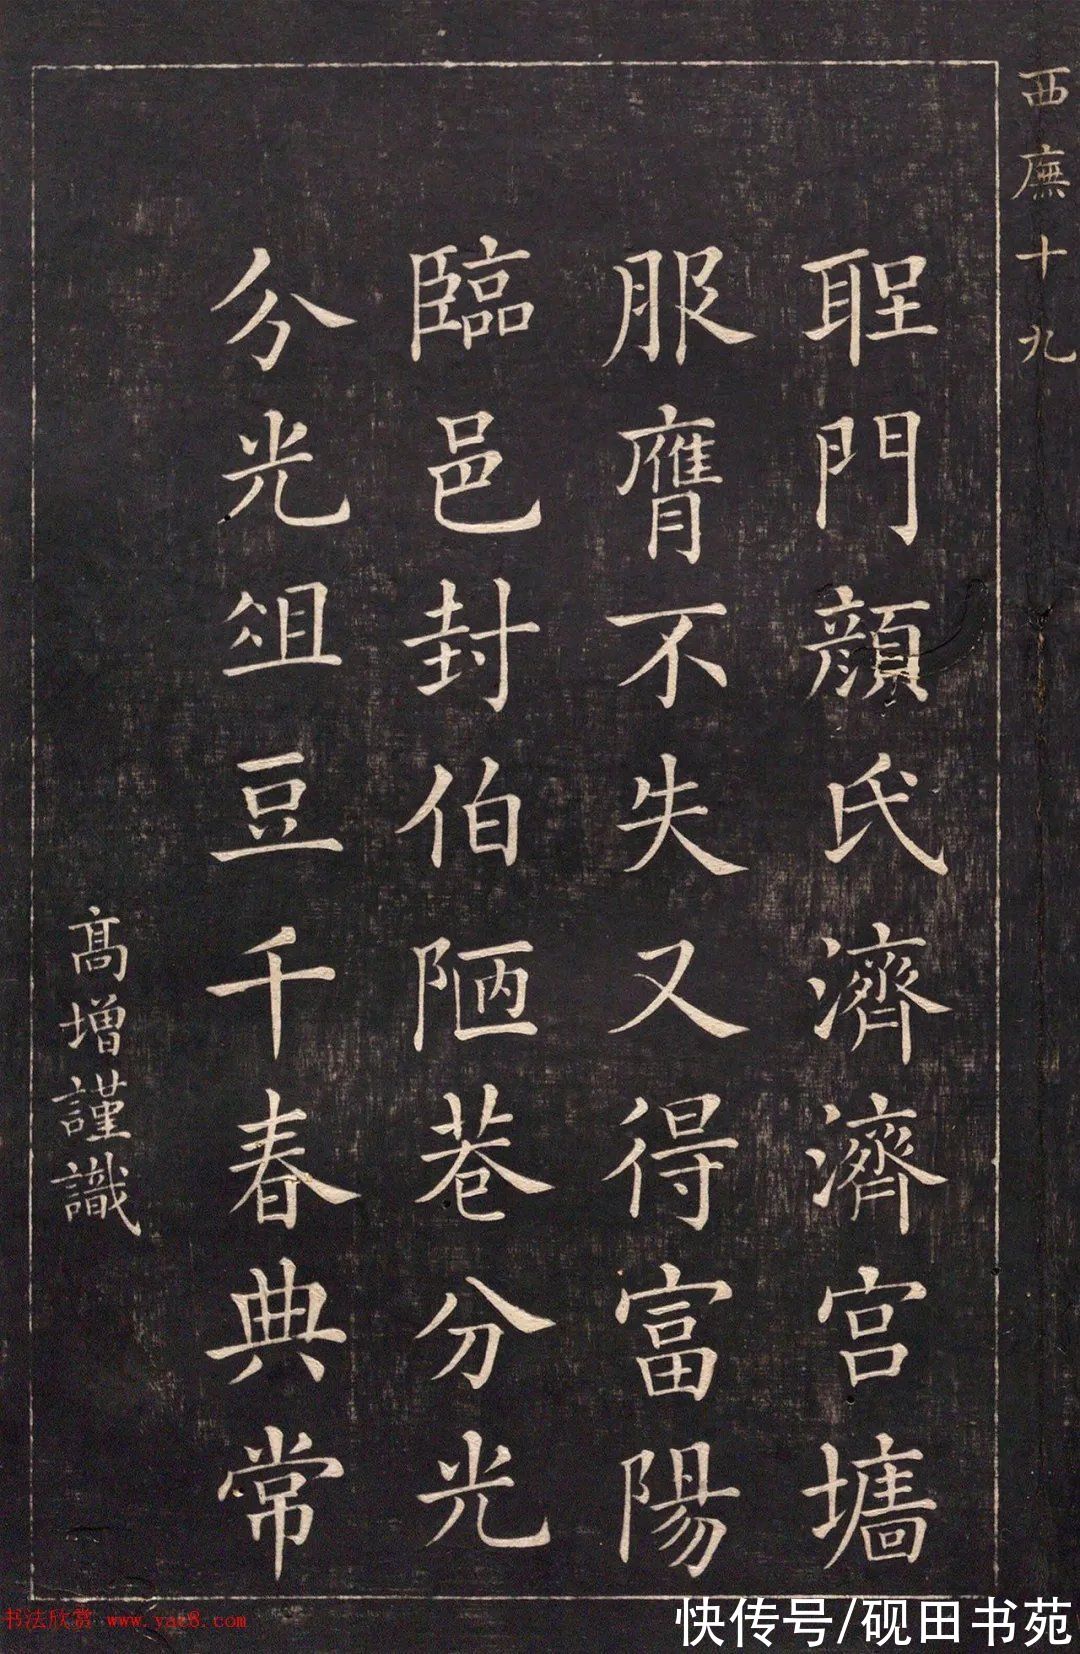 西廡十九
聖門顔氏濟濟宫墻
服膺不失又得富陽
臨邑封伯陋巷分光
分光俎豆千春典常
高增謹識
书法欣赏 www.yac8.com
快传号/砚田书苑